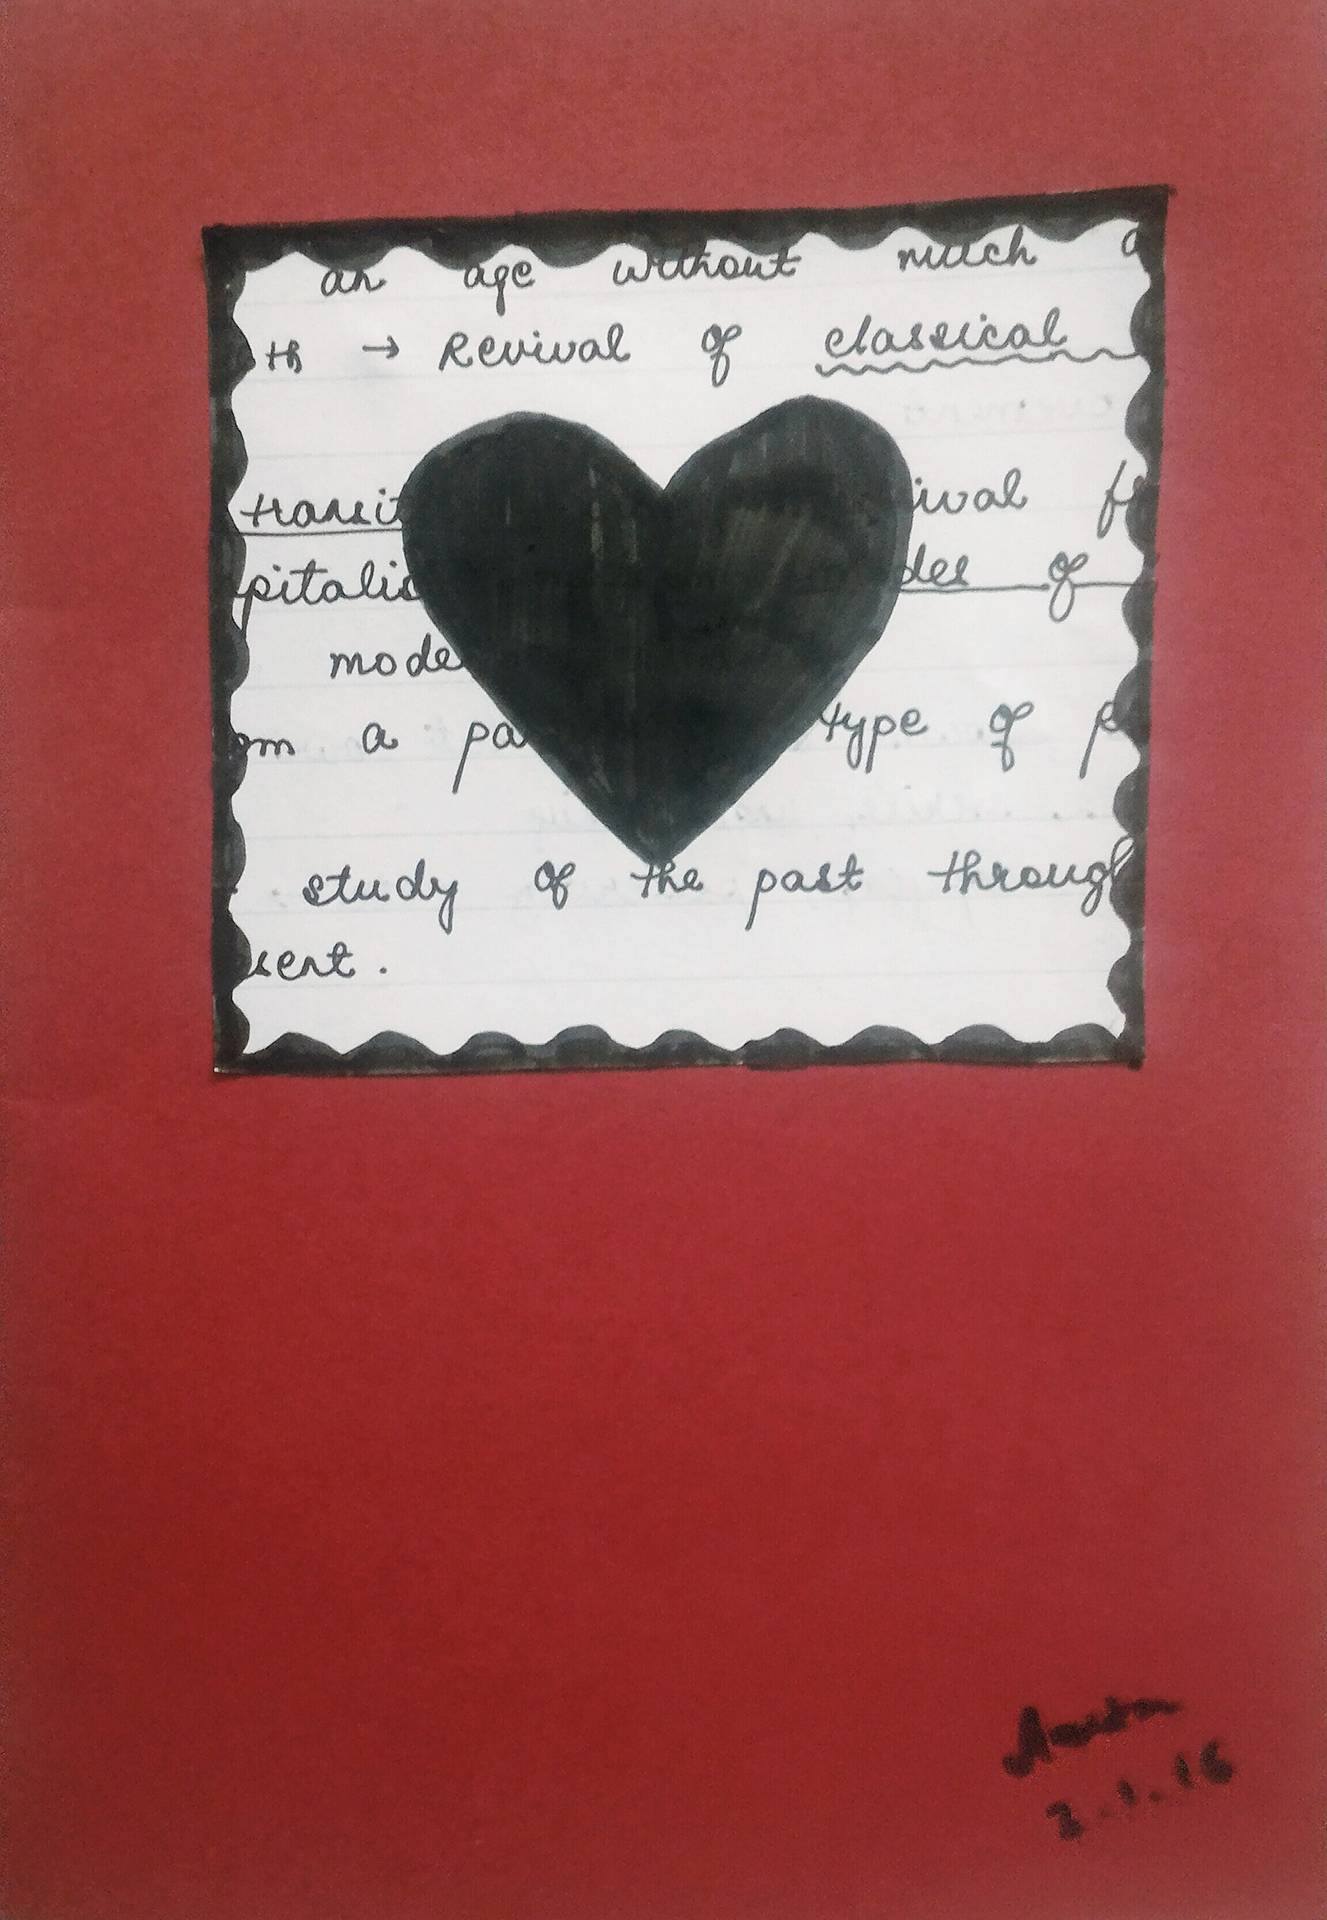 an age without much a
th → Revival of classical
transit ival f
pitalis des of
mode
om a pa type of p
study of the past through
sent.
2.1.16